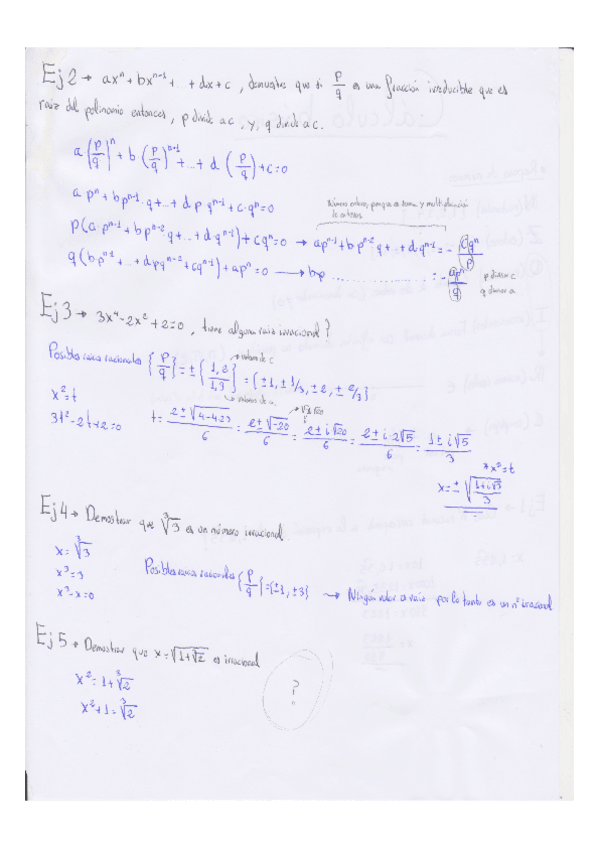 Ej 2 → axⁿ + bxⁿ⁻¹ + ... + dx + c, demuestra que si p/q es una fracción irreducible que es
raiz del polinomio entonces, p divide a c, y, q divide a c.
a (p/q)ⁿ + b · (p/q)ⁿ⁻¹ + ... + d (p/q) + c = 0
a pⁿ + b pⁿ⁻¹ · q + ... + d p qⁿ⁻¹ + c · qⁿ = 0
Número entero, porque es suma y multiplicación
de enteros
p(a · pⁿ⁻¹ + b pⁿ⁻² q + ... + d · qⁿ⁻¹) + c qⁿ = 0 → apⁿ⁻¹ + b pⁿ⁻² q + ... + d qⁿ⁻¹ = - cqⁿ/p
q (b pⁿ⁻¹ + ... + dpqⁿ⁻² + cqⁿ⁻¹) + apⁿ = 0 → bp ............... = - apⁿ/q
p divisor c
q divisor a
Ej 3 → 3x⁴ - 2x² + 2 = 0, tiene alguna raiz irracional?
Posibles raices racionales {p/q} = ± {1, 2 / 1, 3} = {±1, ± 1/3, ± 2, ± 2/3}
→ valores de c
→ valores de a
x² = t
3t² - 2t + 2 = 0
t = (2 ± √(4 - 4·2·3))/6 = (2 ± √-20)/6 = (2 ± i √20)/6 = (2 ± i 2√5)/6 = (1 ± i √5)/3
* x² = t
x = ± √((1 + i√5)/3)
Ej 4 → Demostrar que ∛3 es un número irracional
x = ∛3
x³ = 3
x³ - x = 0
Posibles raices racionales {p/q} = {±1, ±3} → Ningún valor es raiz por lo tanto es un nº irracional
Ej 5 → Demostrar que x = √(1 + ∛2) es irracional
x² = 1 + ∛2
x² + 1 = ∛2
?